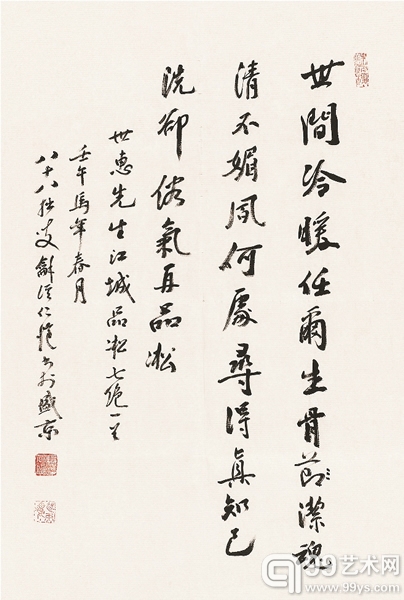 世間冷暖任爾生骨節潔魂
清不媚風何處尋得真知己
洗卻俗氣再品凇
世惠先生江城品凇七絕一首
壬午馬年春月
八十八拙叟龢溪仁愷書於盛京
99艺术网
www.99ys.com